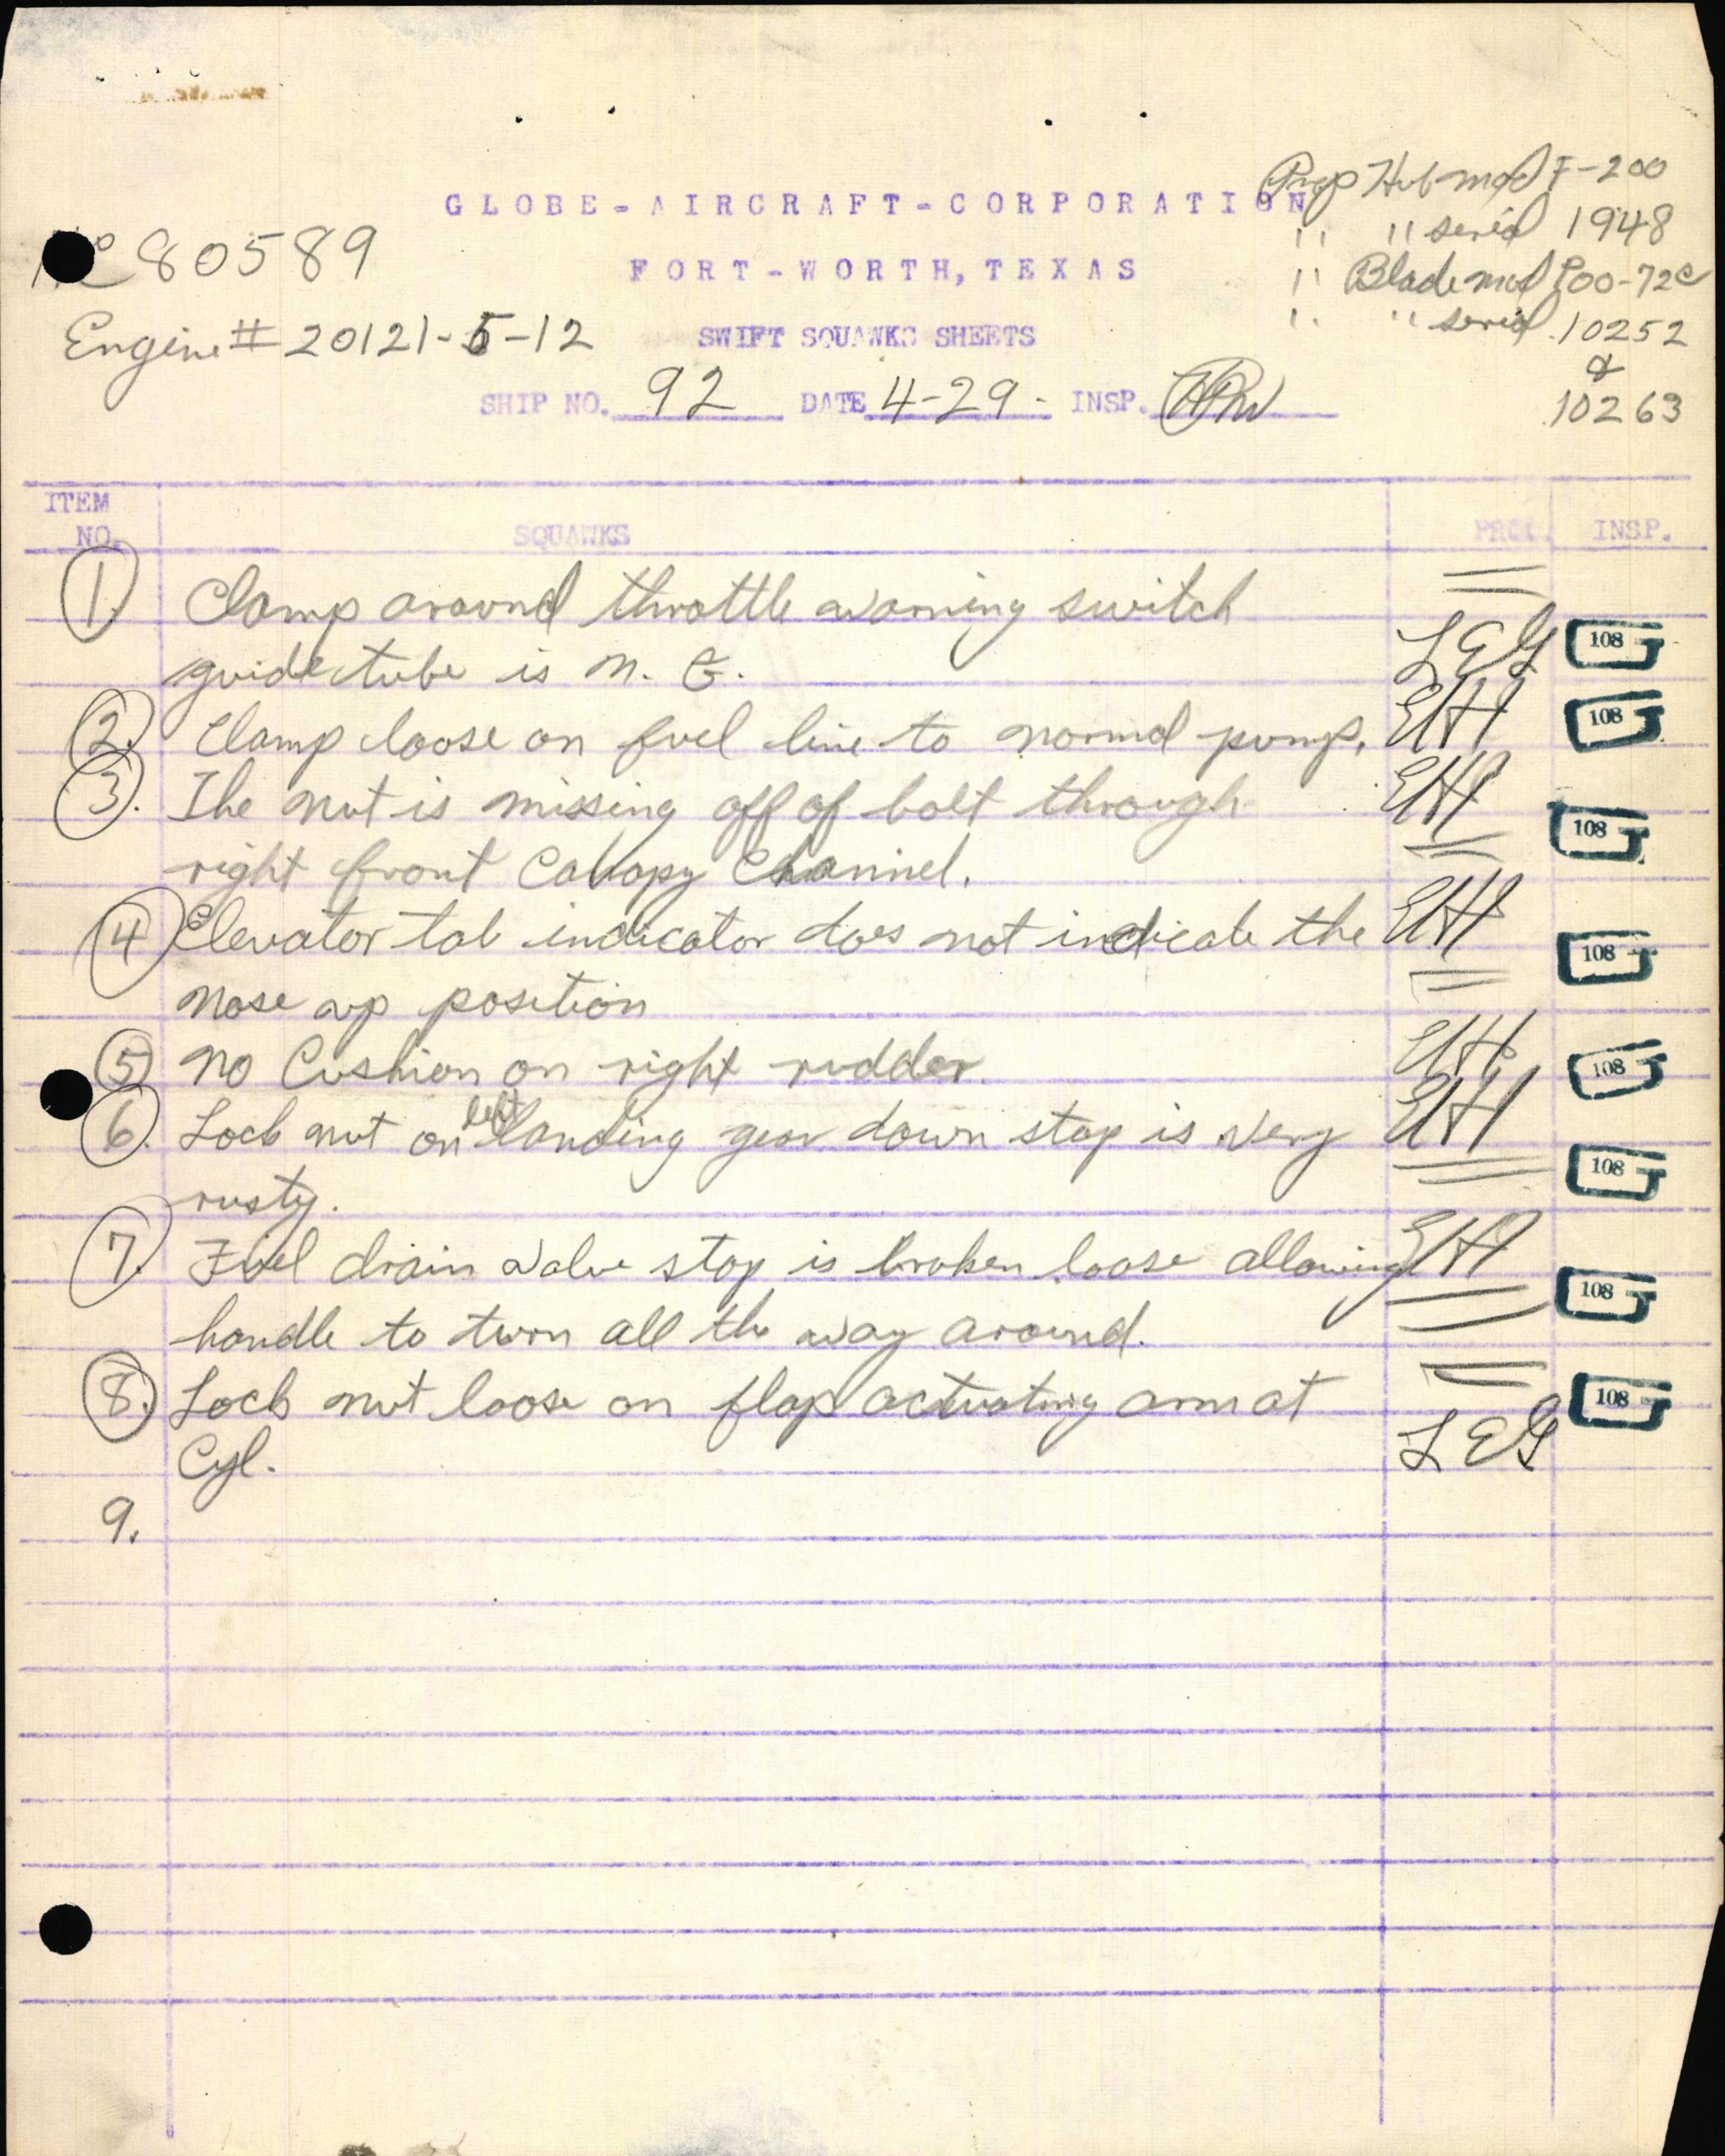 Prop Hub mod F-200
GLOBE-AIRCRAFT-CORPORATION
" " serial 1948
NC 80589
FORT-WORTH, TEXAS
" Blade mod P00-72C
Engine # 20121-5-12
SWIFT SQUAWKS SHEETS
" " serial 10252
&
10263
SHIP NO. 92 DATE 4-29- INSP.
ITEM
NO. SQUAWKS PROD. INSP.
1. Clamp around throttle warning switch
guide tube is N. G. LEG 108
2. Clamp loose on fuel line to normal pump. EHH 108
3. The nut is missing off of bolt through EHH 108
right front Canopy Channel.
4 Elevator tab indicator does not indicate the EHH 108
nose up position
5 No Cushion on right rudder. EHH 108
6. Lock nut on left landing gear down stop is very EHH 108
rusty.
7. Fuel drain valve stop is broken loose allowing EHH 108
handle to turn all the way around.
8. Lock nut loose on flap actuating arm at 108
Cyl. LEG
9.